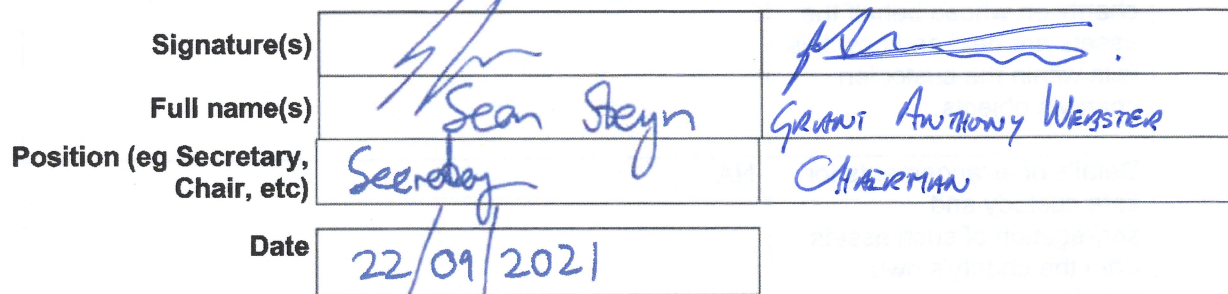 Signature(s)
Full name(s) Sean Steyn GRANT ANTHONY WEBSTER
Position (eg Secretary, Chair, etc) Secretary CHAIRMAN
Date 22/09/2021